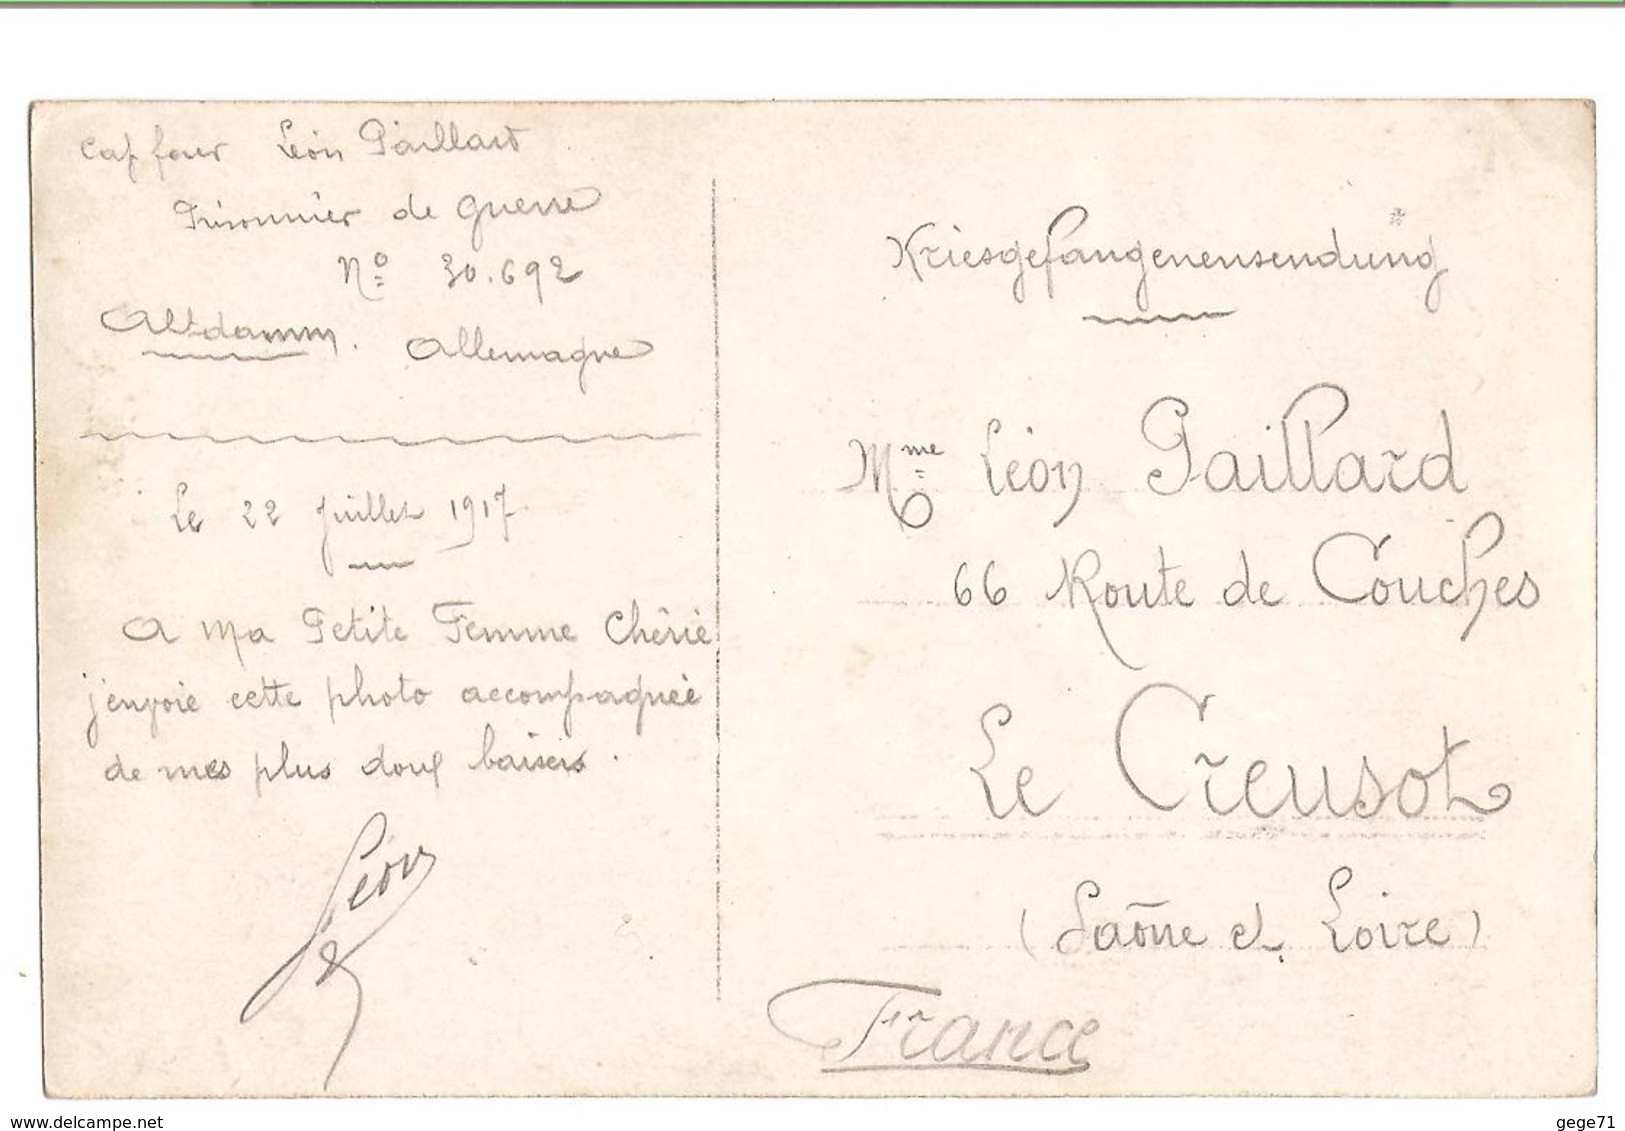 Cap four Léon Paillard
Prisonnier de guerre
N° 30.692
Altdamm. Allemagne
Le 22 juillet 1917
A Ma Petite Femme Chérie
j'envoie cette photo accompagnée
de mes plus doux baisers.
Léon
Kriesgefangenensendung
Mme Léon Paillard
66 Route de Couches
Le Creusot
(Saône et Loire)
France
www.delcampe.net
gege71